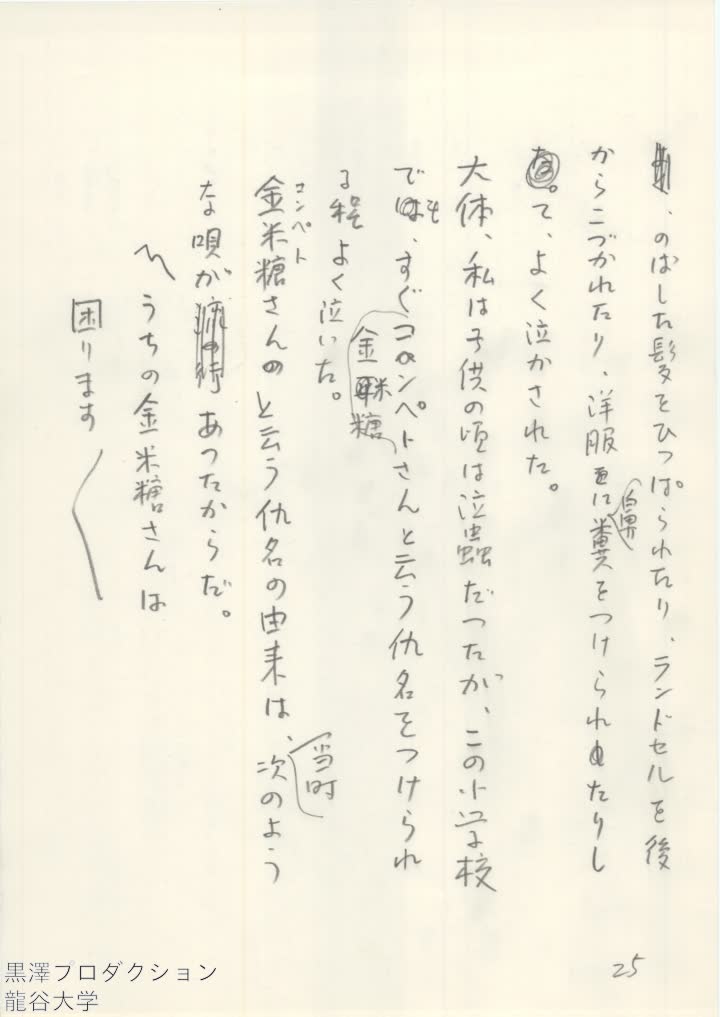 、のばした髪をひつぱられたり、ランドセルを後
からこづかれたり、洋服に鼻糞をつけられたりし
て、よく泣かされた。
大体、私は子供の頃は泣蟲だつたが、この小学校
でも、すぐコンペトさんと云う仇名をつけられ
金米糖
る程よく泣いた。
コンペト
金米糖さんのと云う仇名の由来は、当時次のよう
な唄があつたからだ。
〽うちの金米糖さんは
困ります
25
黒澤プロダクション
龍谷大学